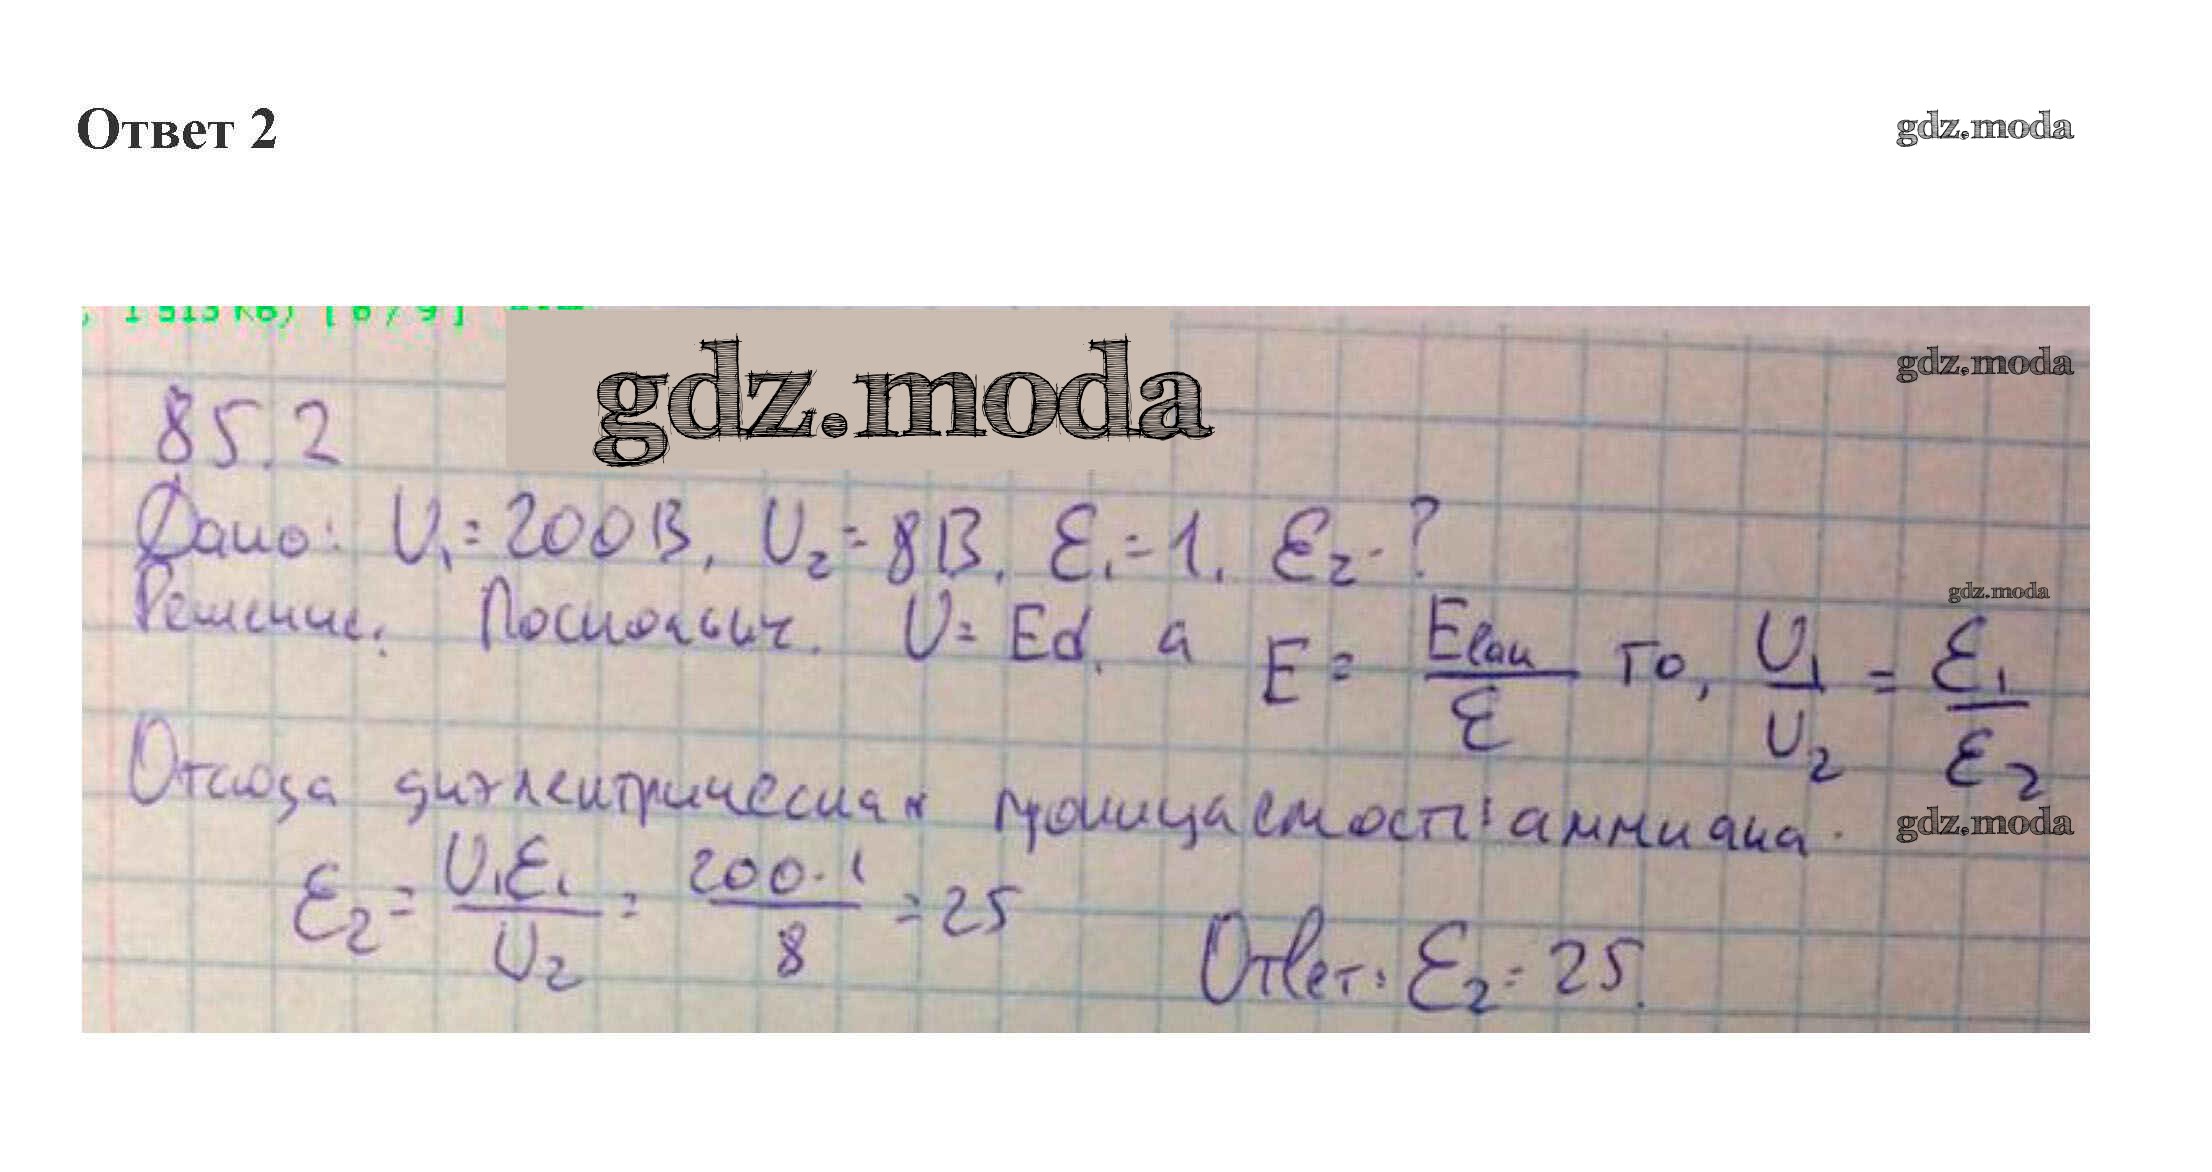 Ответ 2
gdz.moda
gdz.moda
gdz.moda
85.2
Дано: U₁ = 200В, U₂ = 8В, ε₁ = 1. ε₂ - ?
gdz.moda
Решение. Поскольку. U = Ed, а E = Eвак/ε то, U₁/U₂ = ε₁/ε₂
Отсюда диэлектрическая проницаемость аммиака.
gdz.moda
ε₂ = U₁ε₁/U₂ = 200·1/8 = 25
Ответ: ε₂ = 25.